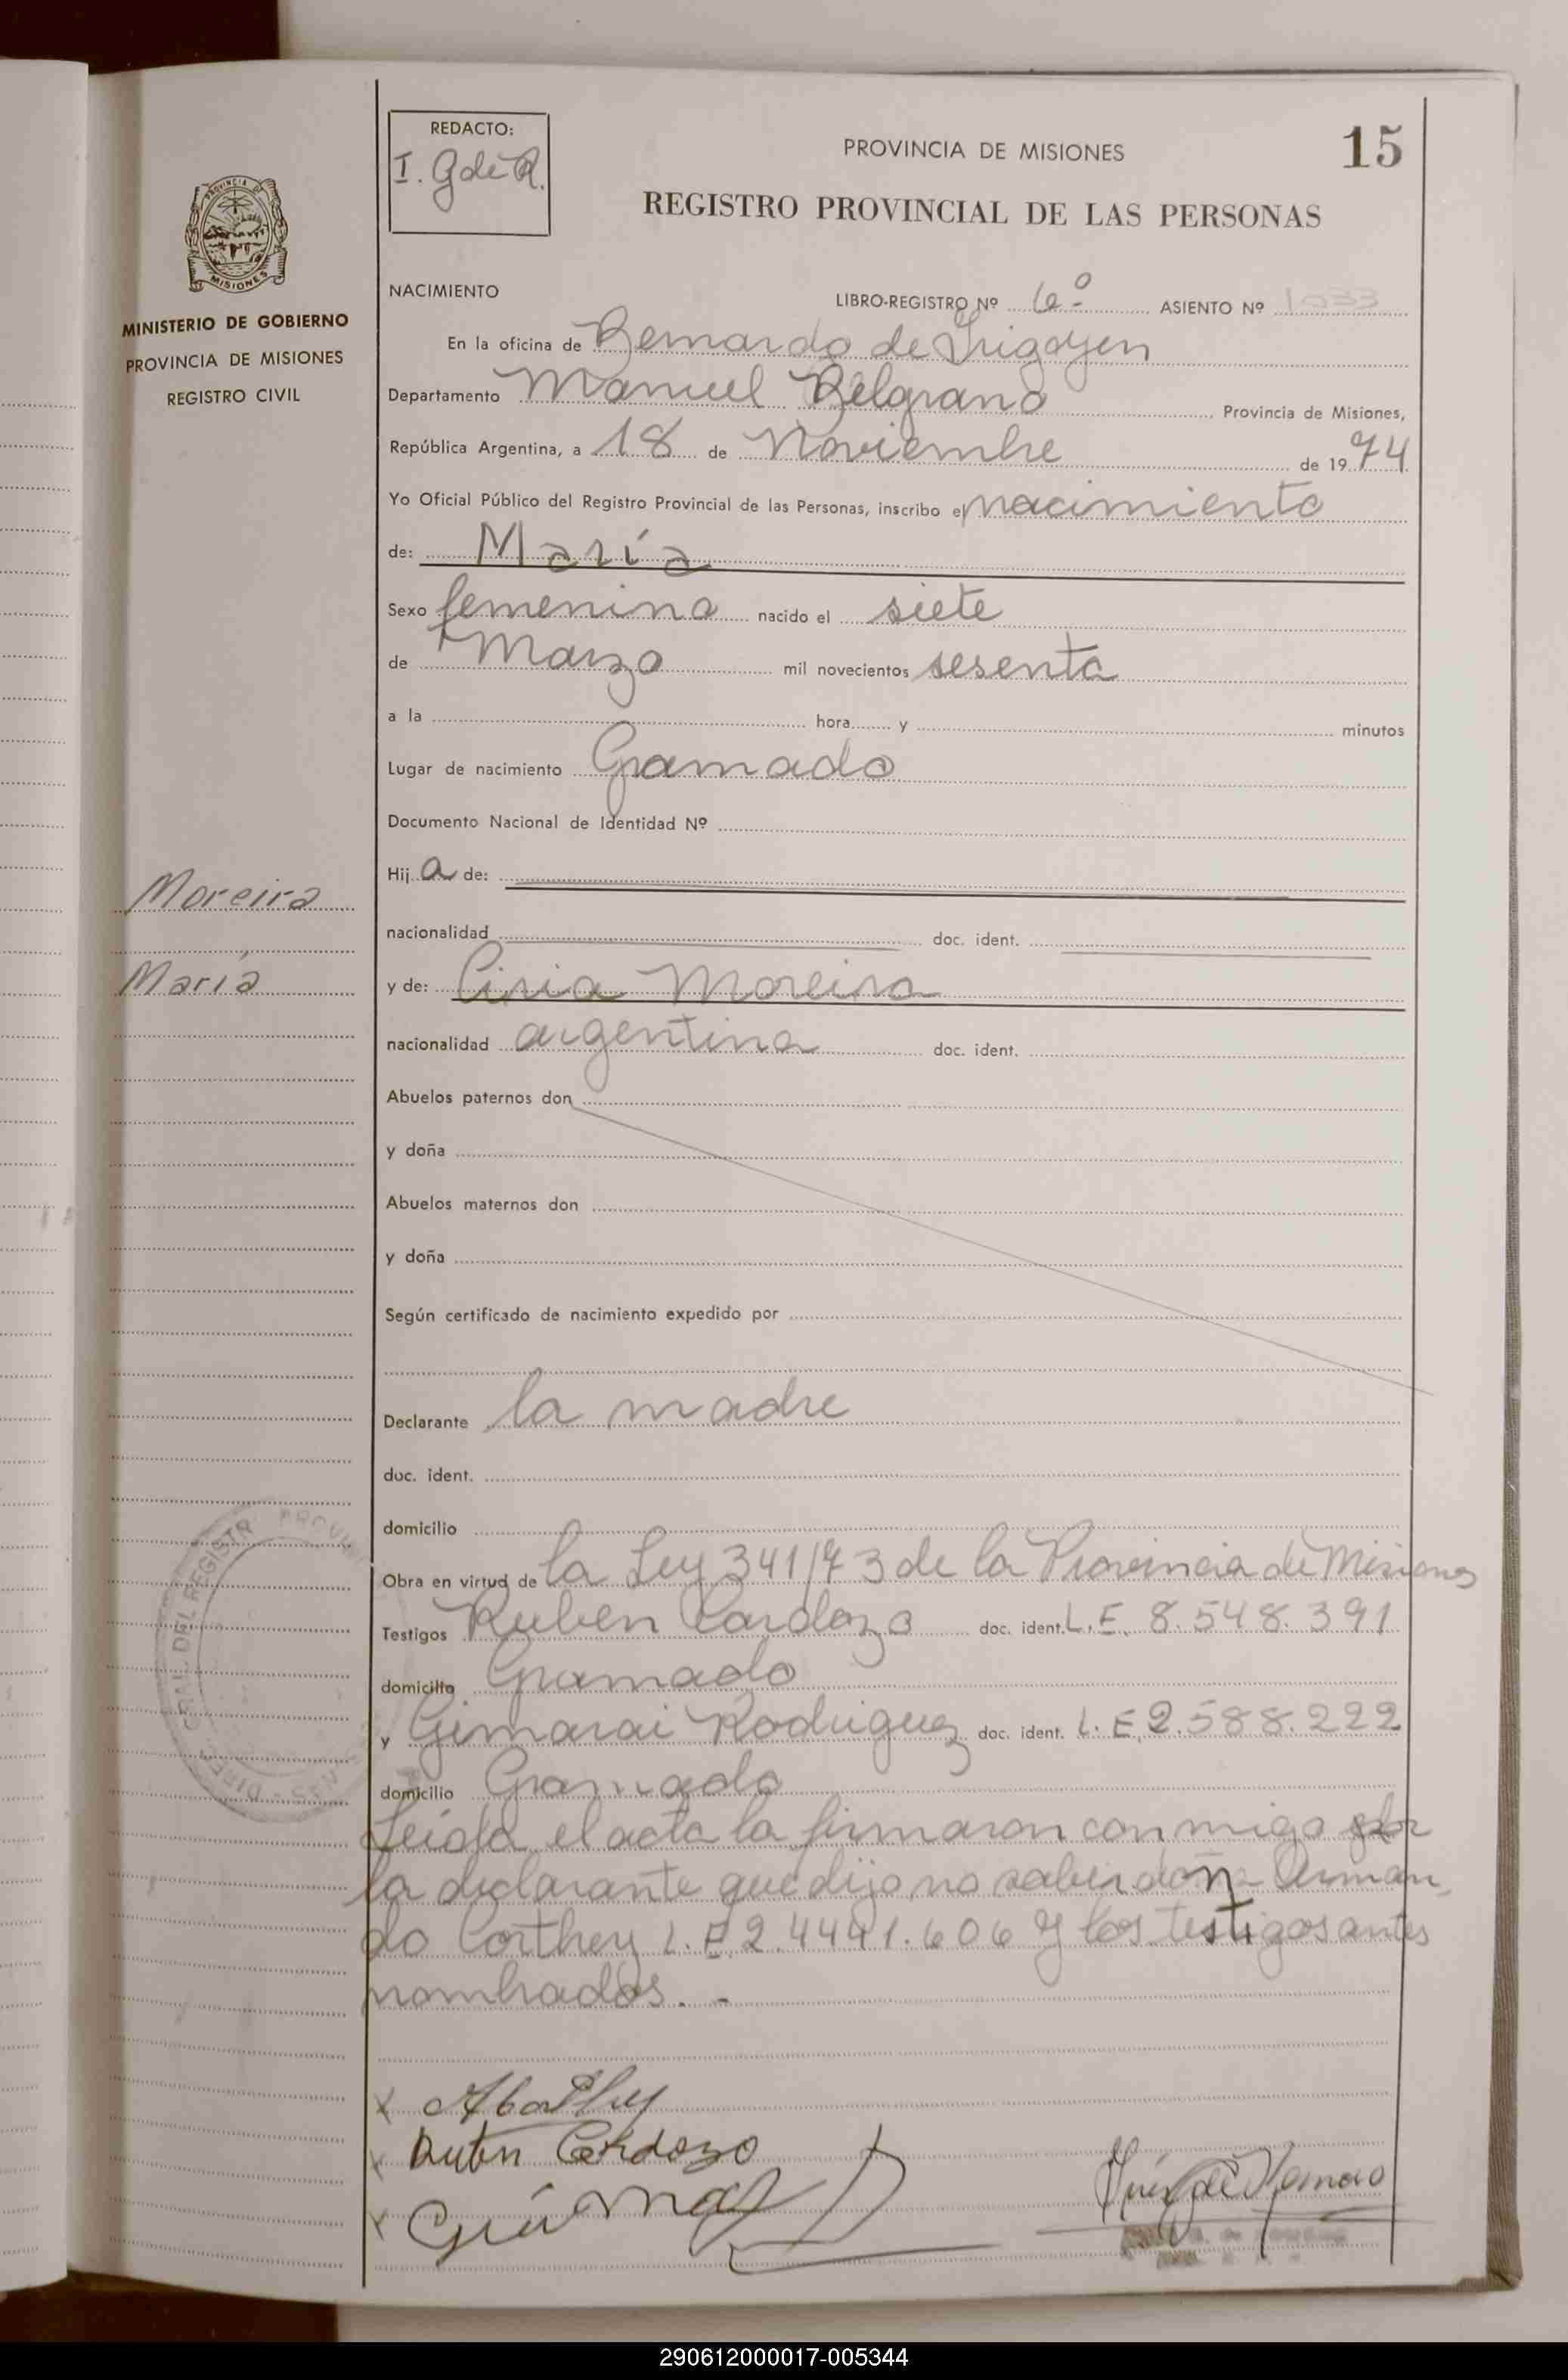 15
REDACTO:
I. G de R.
PROVINCIA DE MISIONES
REGISTRO PROVINCIAL DE LAS PERSONAS
MISIONES
MINISTERIO DE GOBIERNO
PROVINCIA DE MISIONES
REGISTRO CIVIL
NACIMIENTO LIBRO-REGISTRO Nº 6º ASIENTO Nº 1033
En la oficina de Bernardo de Irigoyen
Departamento Manuel Belgrano Provincia de Misiones,
República Argentina, a 18 de Noviembre de 1974
Yo Oficial Público del Registro Provincial de las Personas, inscribo el nacimiento
de: María
Sexo femenino nacido el siete
de Marzo mil novecientos sesenta
a la hora y minutos
Lugar de nacimiento Gramado
Documento Nacional de Identidad Nº
Hij a de:
Moreira
nacionalidad doc. ident.
María
y de: Ciria Moreira
nacionalidad argentina doc. ident.
Abuelos paternos don
y doña
Abuelos maternos don
y doña
Según certificado de nacimiento expedido por
Declarante la madre
doc. ident.
domicilio
Obra en virtud de la Ley 341/73 de la Provincia de Misiones
Testigos Ruben Cardozo doc. ident. L.E. 8.548.391
domicilio Gramado
y Gimarai Rodriguez doc. ident. L.E 2.588.222
domicilio Gramado
Leída el acta la firmaron conmigo por
la declarante que dijo no saber don Arman
do Corthey L.E 2.4441.606 y los testigos antes
nombrados. -
Ruben Cardozo
290612000017-005344